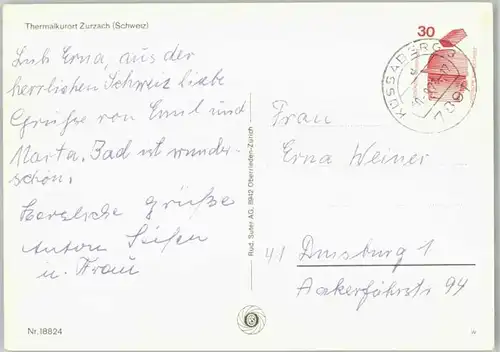 Thermalkurort Zurzach (Schweiz)
Lieb Erna, aus der
herrlichen Schweiz liebe
Grüsse von Emil und
Marta. Bad ist wunder-
schön.
Herzliche Grüße
Anton Seifen
u. Frau
Nr. 18824
Rud. Suter AG, 8942 Oberrieden-Zürich
30
KÜSSABERG
Frau
Erna Weiner
41 Duisburg 1
Aakerfährstr 94
W